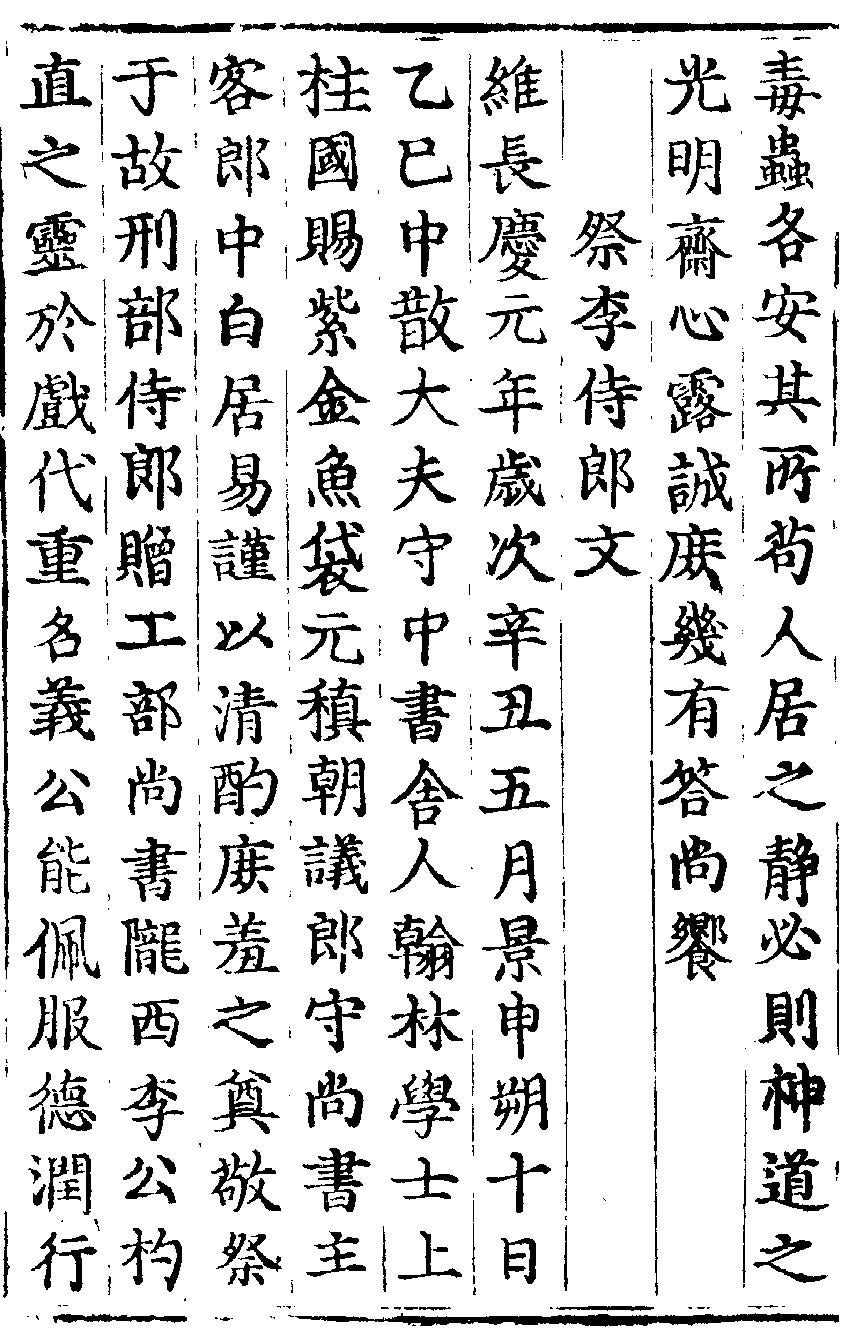 毒蟲各安其所苟人居之静必則神道之
光明齋心露誠庻幾有答尚饗
祭李侍郎文
維長慶元年歲次辛丑五月景申朔十日
乙巳中散大夫守中書舍人翰林學士上
柱國賜紫金魚袋元稹朝議郎守尚書主
客郎中白居易謹以清酌庻羞之奠敬祭
于故刑部侍郎贈工部尚書隴西李公杓
直之靈於戲代重名義公能佩服德潤行